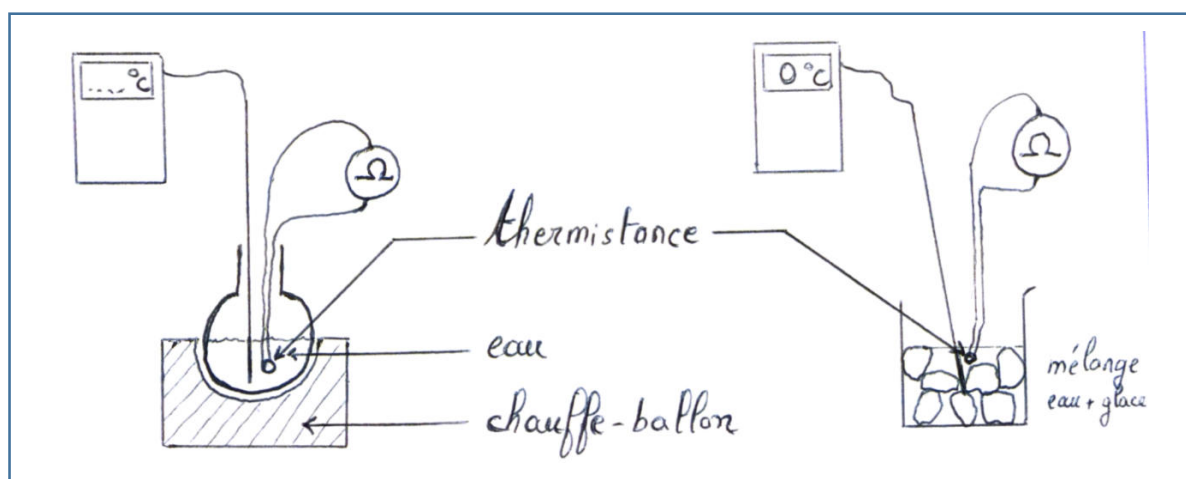 ....°C
0°C
Ω
Ω
thermistance
eau
chauffe-ballon
mélange
eau + glace